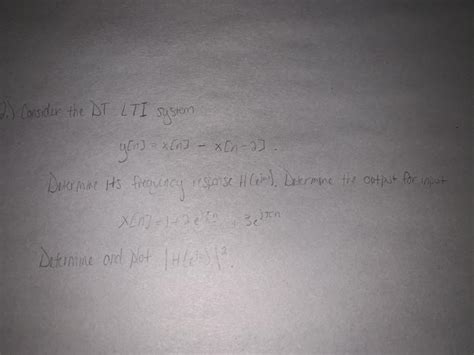 2.) Consider the DT LTI system
y[n] = x[n] - x[n-2].
Determine its frequency response H(e^jω). Determine the output for input
x[n] = 1 + 2e^j n 3e^jπn
Determine and plot |H(e^jω)|².